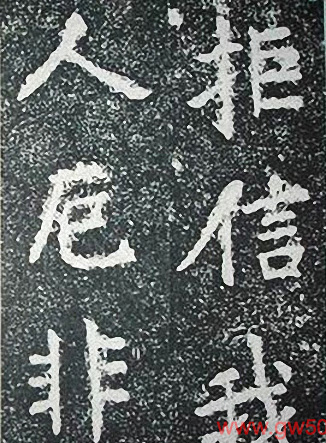 拒信我
人非
www.gw50